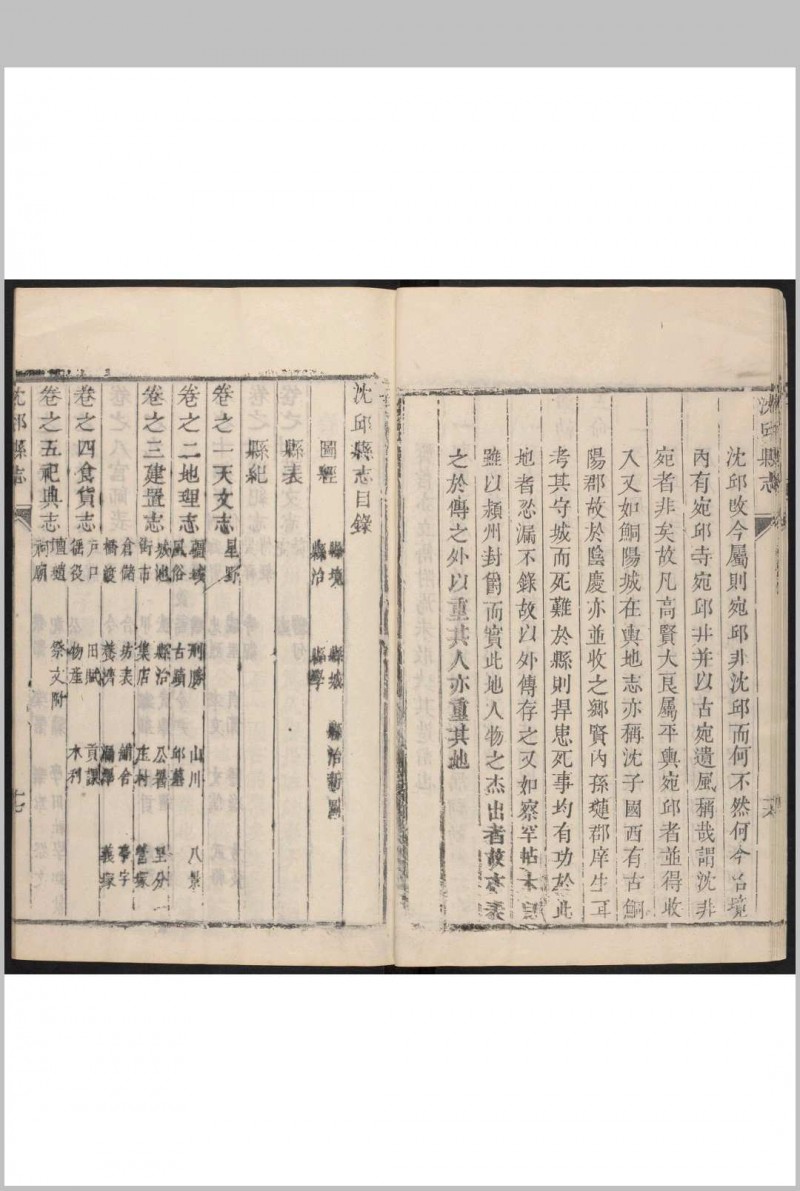 沈邱縣志
沈邱收今屬則宛邱非沈邱而何不然何今沈境
內有宛邱寺宛邱井并以古宛遺風稱哉謂沈非
宛者非矣故凡高賢大良屬平輿宛邱者並得收
入又如鮦陽城在輿地志亦稱沈子國西有古鮦
陽郡故於陰慶亦並收之鄉賢內孫璉郡庠生耳
考其守城而死難於縣則捍患死事均有功於此
地者恐漏不錄故以外傳存之又如察罕帖木
雖以潁州封爵而實此地人物之杰出者故亦
之於傳之外以重其人亦重其地
沈邱縣志目錄
圖經
縣境 縣城 縣治新圖
縣治 縣學
縣表
縣紀
卷之一天文志
星野
卷之二地理志
疆域 形勝 山川 八景
風俗 古蹟 邱墓
卷之三建置志
城池 縣治 公署 里分
街市 集店 庄村 營寨
倉儲 坊表 鋪舍 亭字
橋渡 養濟 漏澤 義塚
卷之四食貨志
戸口 田賦 貢課
徭役 物產 水利
卷之五祀典志
壇壝 祭文附
祠廟
沈邱縣志
十七